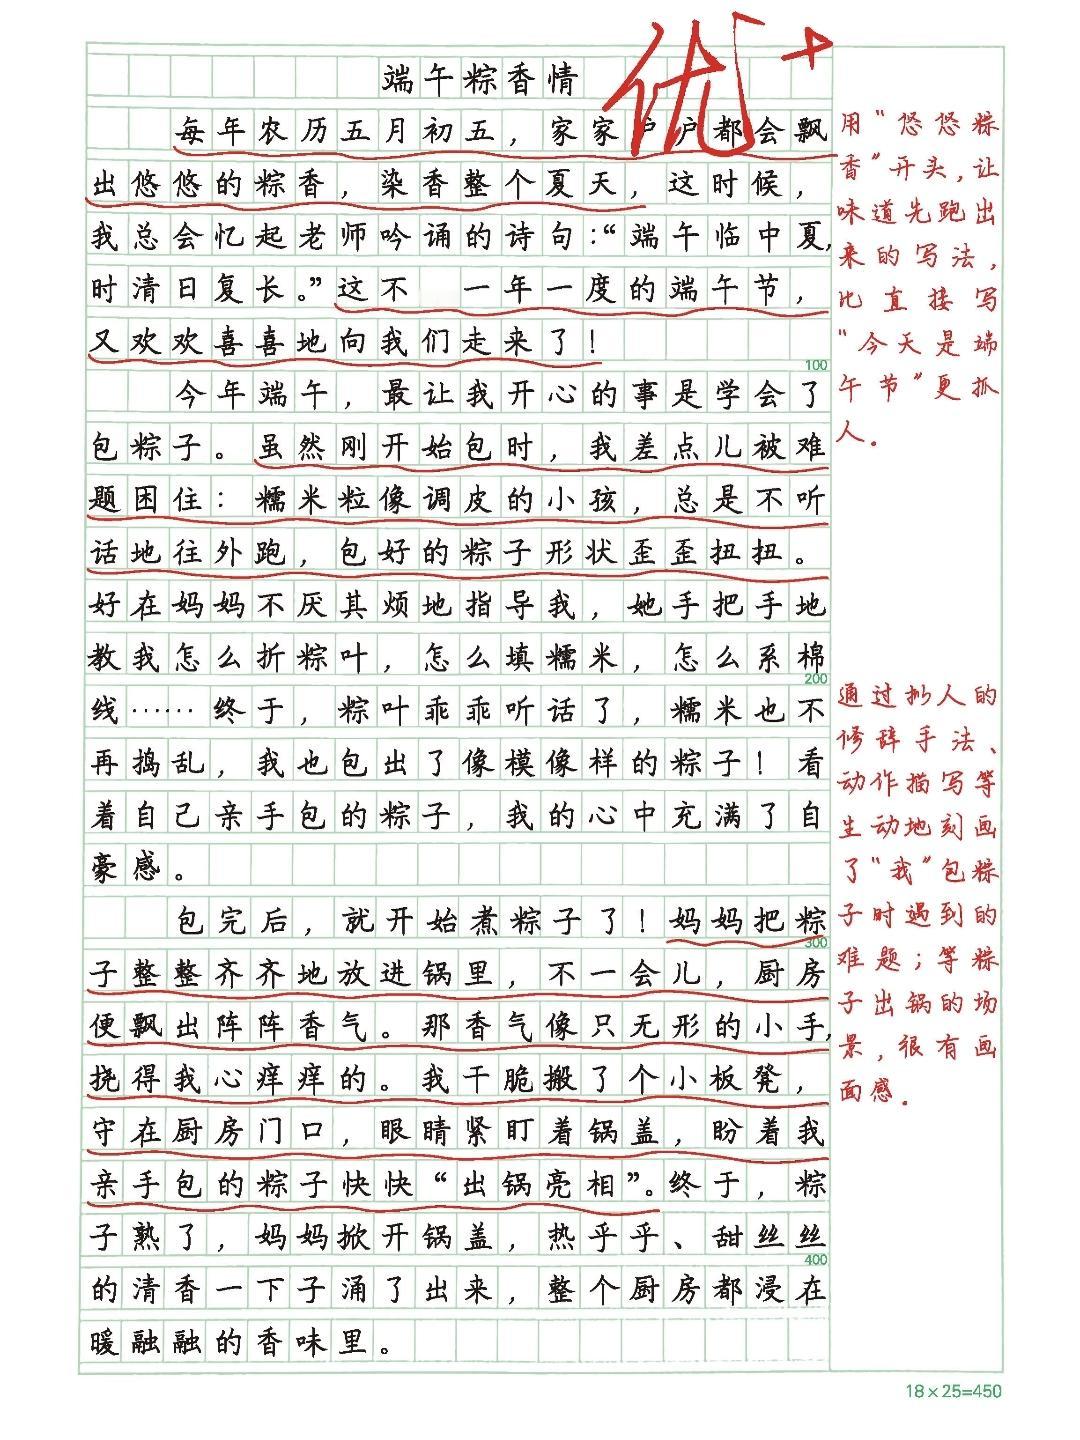 端午粽香情
优+
每年农历五月初五，家家户户都会飘
出悠悠的粽香，染香整个夏天，这时候，
我总会忆起老师吟诵的诗句：“端午临中夏，
时清日复长。”这不 一年一度的端午节，
又欢欢喜喜地向我们走来了！
100
今年端午，最让我开心的事是学会了
包粽子。虽然刚开始包时，我差点儿被难
题困住：糯米粒像调皮的小孩，总是不听
话地往外跑，包好的粽子形状歪歪扭扭。
好在妈妈不厌其烦地指导我，她手把手地
教我怎么折粽叶，怎么填糯米，怎么系棉
200
线……终于，粽叶乖乖听话了，糯米也不
再捣乱，我也包出了像模像样的粽子！看
着自己亲手包的粽子，我的心中充满了自
豪感。
包完后，就开始煮粽子了！妈妈把粽
300
子整整齐齐地放进锅里，不一会儿，厨房
便飘出阵阵香气。那香气像只无形的小手，
挠得我心痒痒的。我干脆搬了个小板凳，
守在厨房门口，眼睛紧盯着锅盖，盼着我
亲手包的粽子快快“出锅亮相”。终于，粽
子熟了，妈妈掀开锅盖，热乎乎、甜丝丝
400
的清香一下子涌了出来，整个厨房都浸在
暖融融的香味里。
用“悠悠粽
香”开头，让
味道先跑出
来的写法，
比直接写
“今天是端
午节”更抓
人．
通过拟人的
修辞手法、
动作描写等
生动地刻画
了“我”包粽
子时遇到的
难题；等粽
子出锅的场
景，很有画
面感．
18×25=450